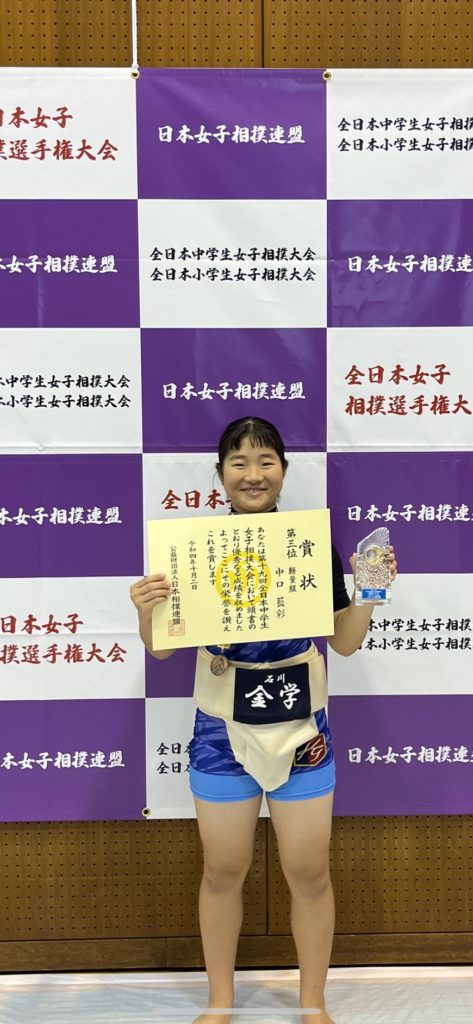 日本女子
撲選手権大会
日本女子相撲連盟
全日本中学生女子相撲
全日本小学生女子相撲
女子相撲連盟
全日本中学生女子相撲大会
全日本小学生女子相撲大会
日本女子相撲連
中学生女子相撲大会
小学生女子相撲大会
日本女子相撲連盟
全日本女子
相撲選手権大
女子相撲連盟
全日本
日本女子相撲連
賞状
第三位 軽量級
中口 藍彩
あなたは第十九回全日本中学生
女子相撲大会において頭書の
とおり優秀なる成績を収めました
よってここにその栄誉を讃え
これを賞します
令和四年十月二日
公益財団法人日本相撲連盟
日本女子
撲選手権大会
日本中学生女子
日本小学生女子
石川
金学
女子相撲連盟
全日
全日
日本女子相撲連